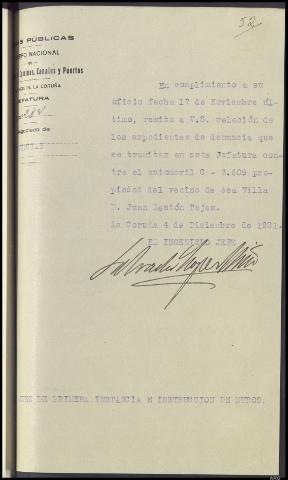 52
S PÚBLICAS
PO NACIONAL
DE
Caminos, Canales y Puertos
DE LA CORUÑA
EFATURA
284
negociado de
En cumplimiento a su
oficio fecha 17 de Noviembre úl-
timo, remito a V.S. relación de
los expedientes de denuncia que
se tramitan en esta Jefatura con-
tra el automovil C - 2.609 pro-
piedad del vecino de esa Villa
D. Juan Lestón Pajes.
La Coruña 4 de Diciembre de 1931.
EL INGENIERO JEFE
JUEZ DE PRIMERA INSTANCIA E INSTRUCCION DE MUROS.